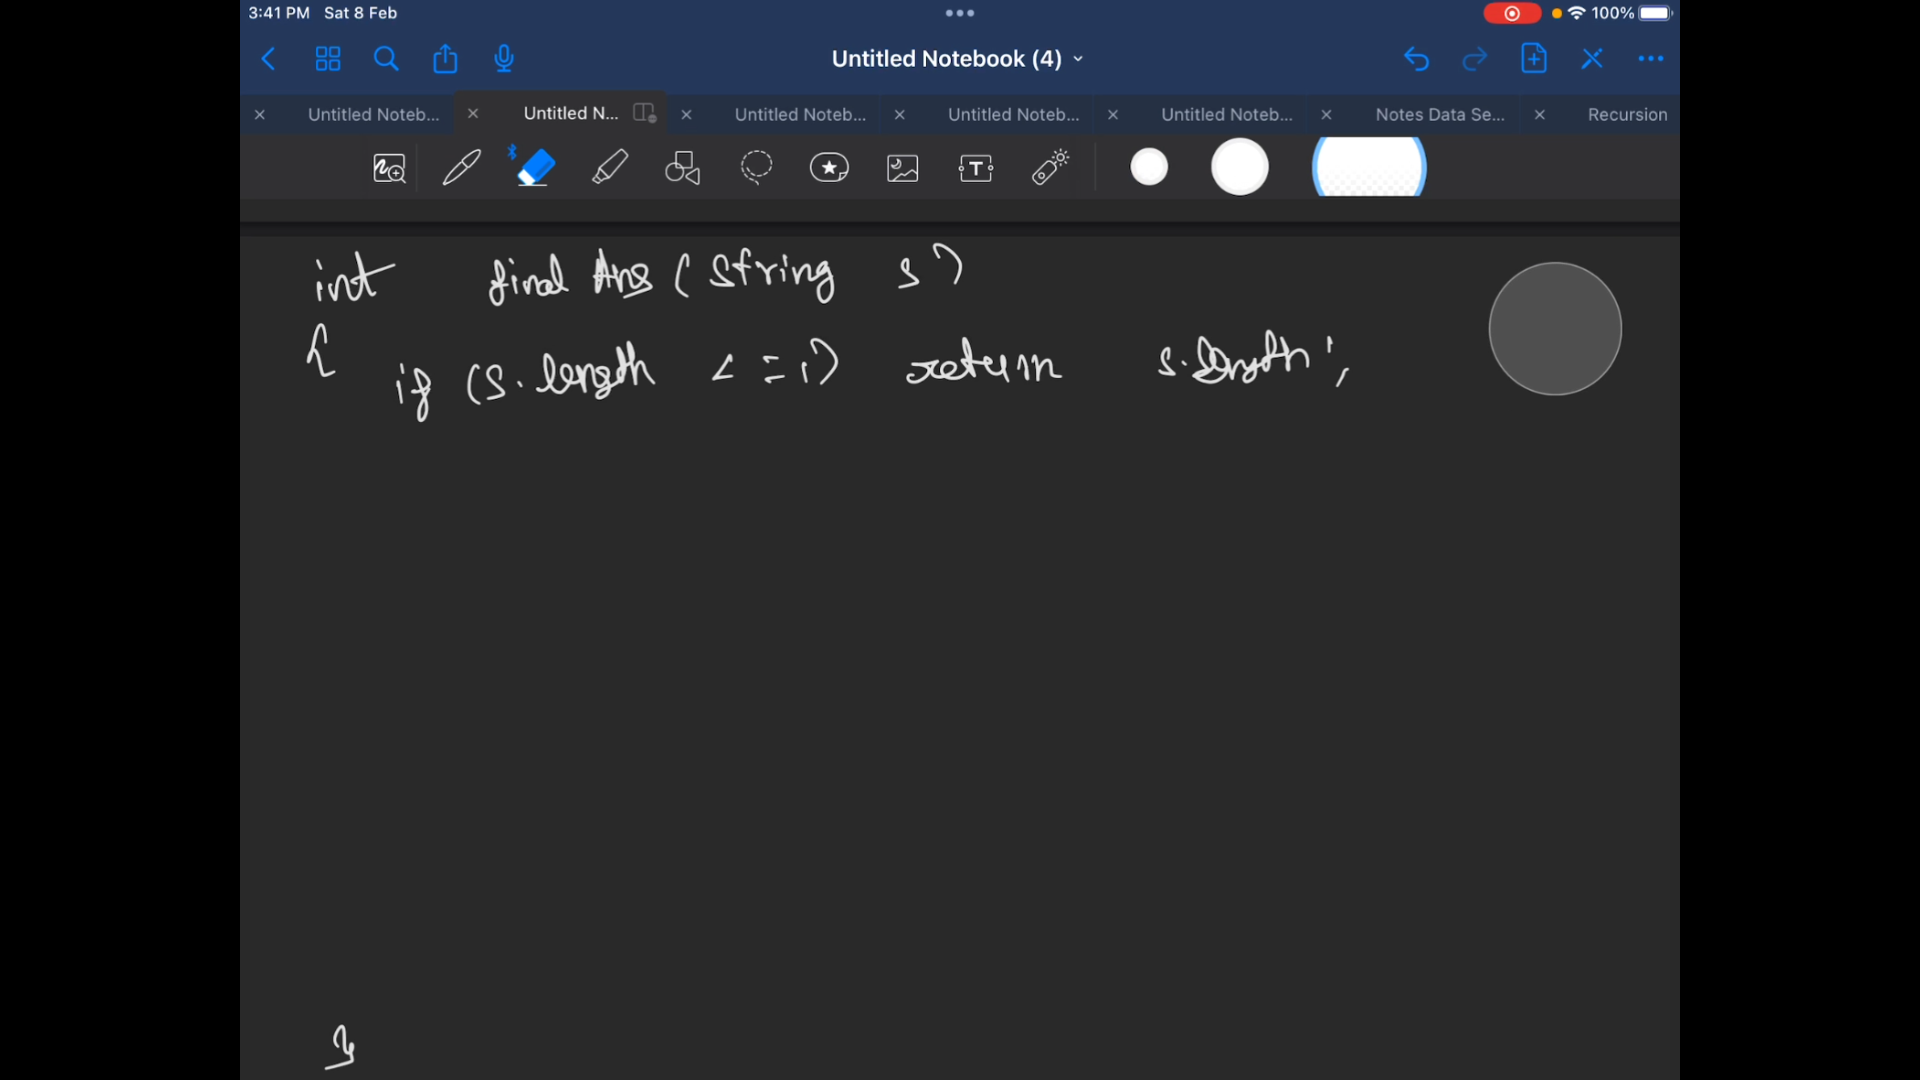 3:41 PM Sat 8 Feb
100%
Untitled Notebook (4)
Untitled Noteb...
Untitled N...
Untitled Noteb...
Untitled Noteb...
Untitled Noteb...
Notes Data Se...
Recursion
int final Ans (String s)
{
if (s.length <= 1) return s.length;
}